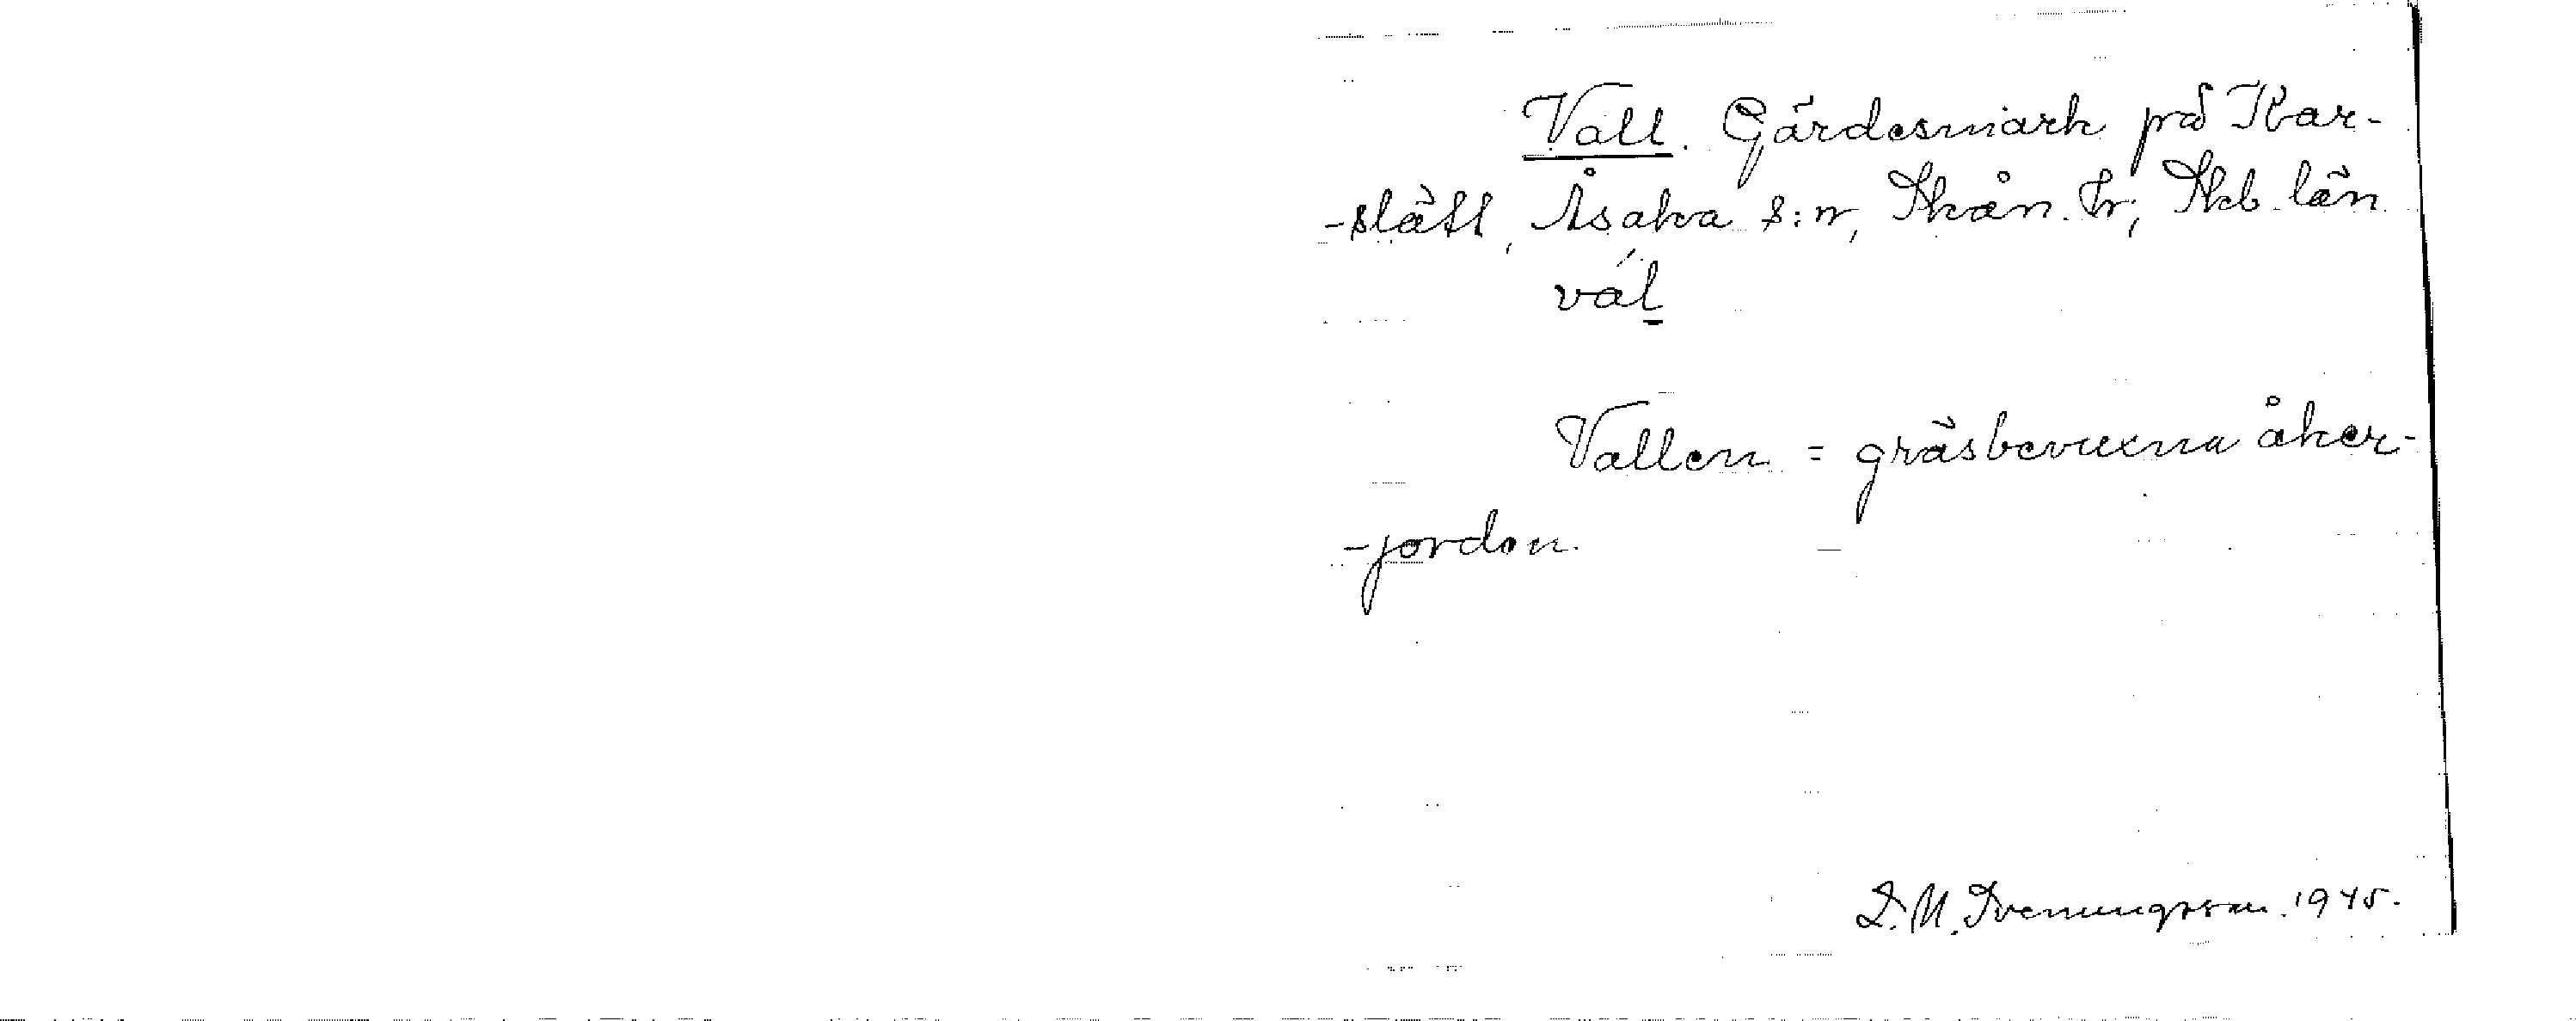 Vall. Gärdesmark på Kar-
-slätt, Åsaka s:n, Skån. hr, Skb. län
vál
Vallen = gräsbevuxna åker-
-jorden.
D. M. Svenungsson. 1945.